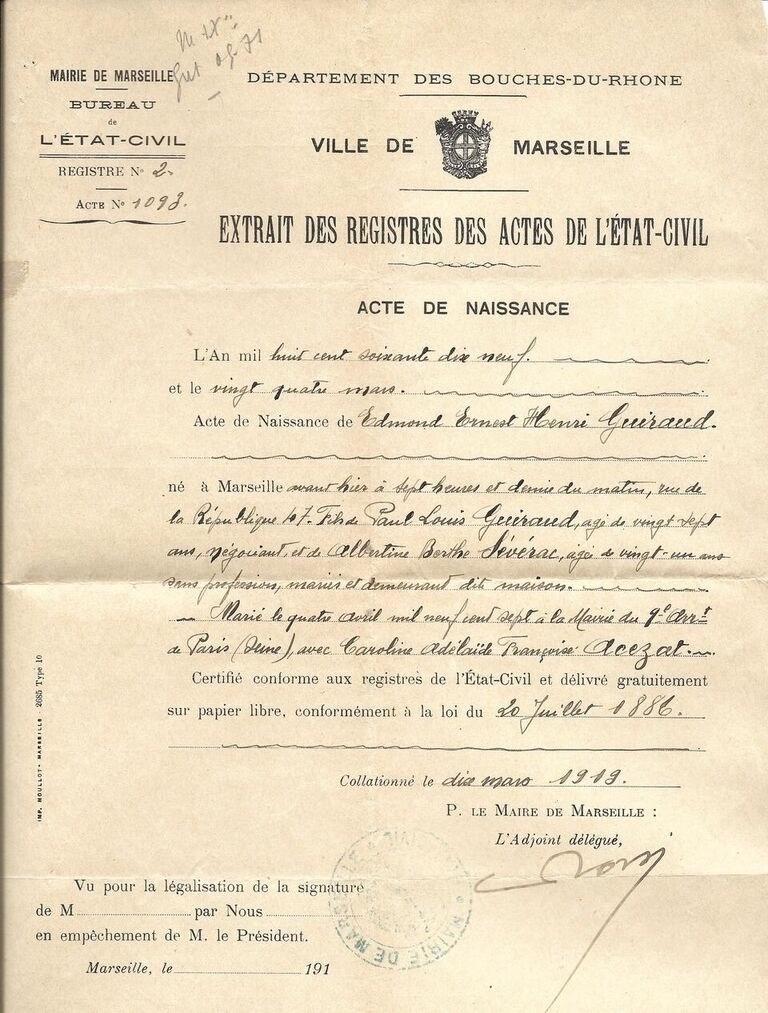 MAIRIE DE MARSEILLE
BUREAU
de
L'ÉTAT-CIVIL
REGISTRE N° 2.
ACTE N° 1093.
DÉPARTEMENT DES BOUCHES-DU-RHONE
VILLE DE MARSEILLE
EXTRAIT DES REGISTRES DES ACTES DE L'ÉTAT-CIVIL
ACTE DE NAISSANCE
L'An mil huit cent soixante dix neuf.
et le vingt quatre mars.
Acte de Naissance de Edmond Ernest Henri Guéraud.
né à Marseille avant hier à sept heures et demie du matin, rue de
la République 47. Fils de Paul Louis Guéraud, agé de vingt sept
ans, négociant, et de Albertine Berthe Sévérac, agée de vingt-un ans
sans profession, mariés et demeurant dite maison.
Marié le quatre avril mil neuf cent sept à la Mairie du 9e Arrt
de Paris (Seine), avec Caroline Adélaïde Françoise Acezat.
Certifié conforme aux registres de l'État-Civil et délivré gratuitement
sur papier libre, conformément à la loi du 20 Juillet 1886.
Collationné le dix mars 1919.
P. LE MAIRE DE MARSEILLE :
L'Adjoint délégué,
Vu pour la légalisation de la signature
de M par Nous
en empêchement de M. le Président.
Marseille, le 191
MAIRIE DE MARSEILLE
IMP. MOULLOT - MARSEILLE 2685 Type 10